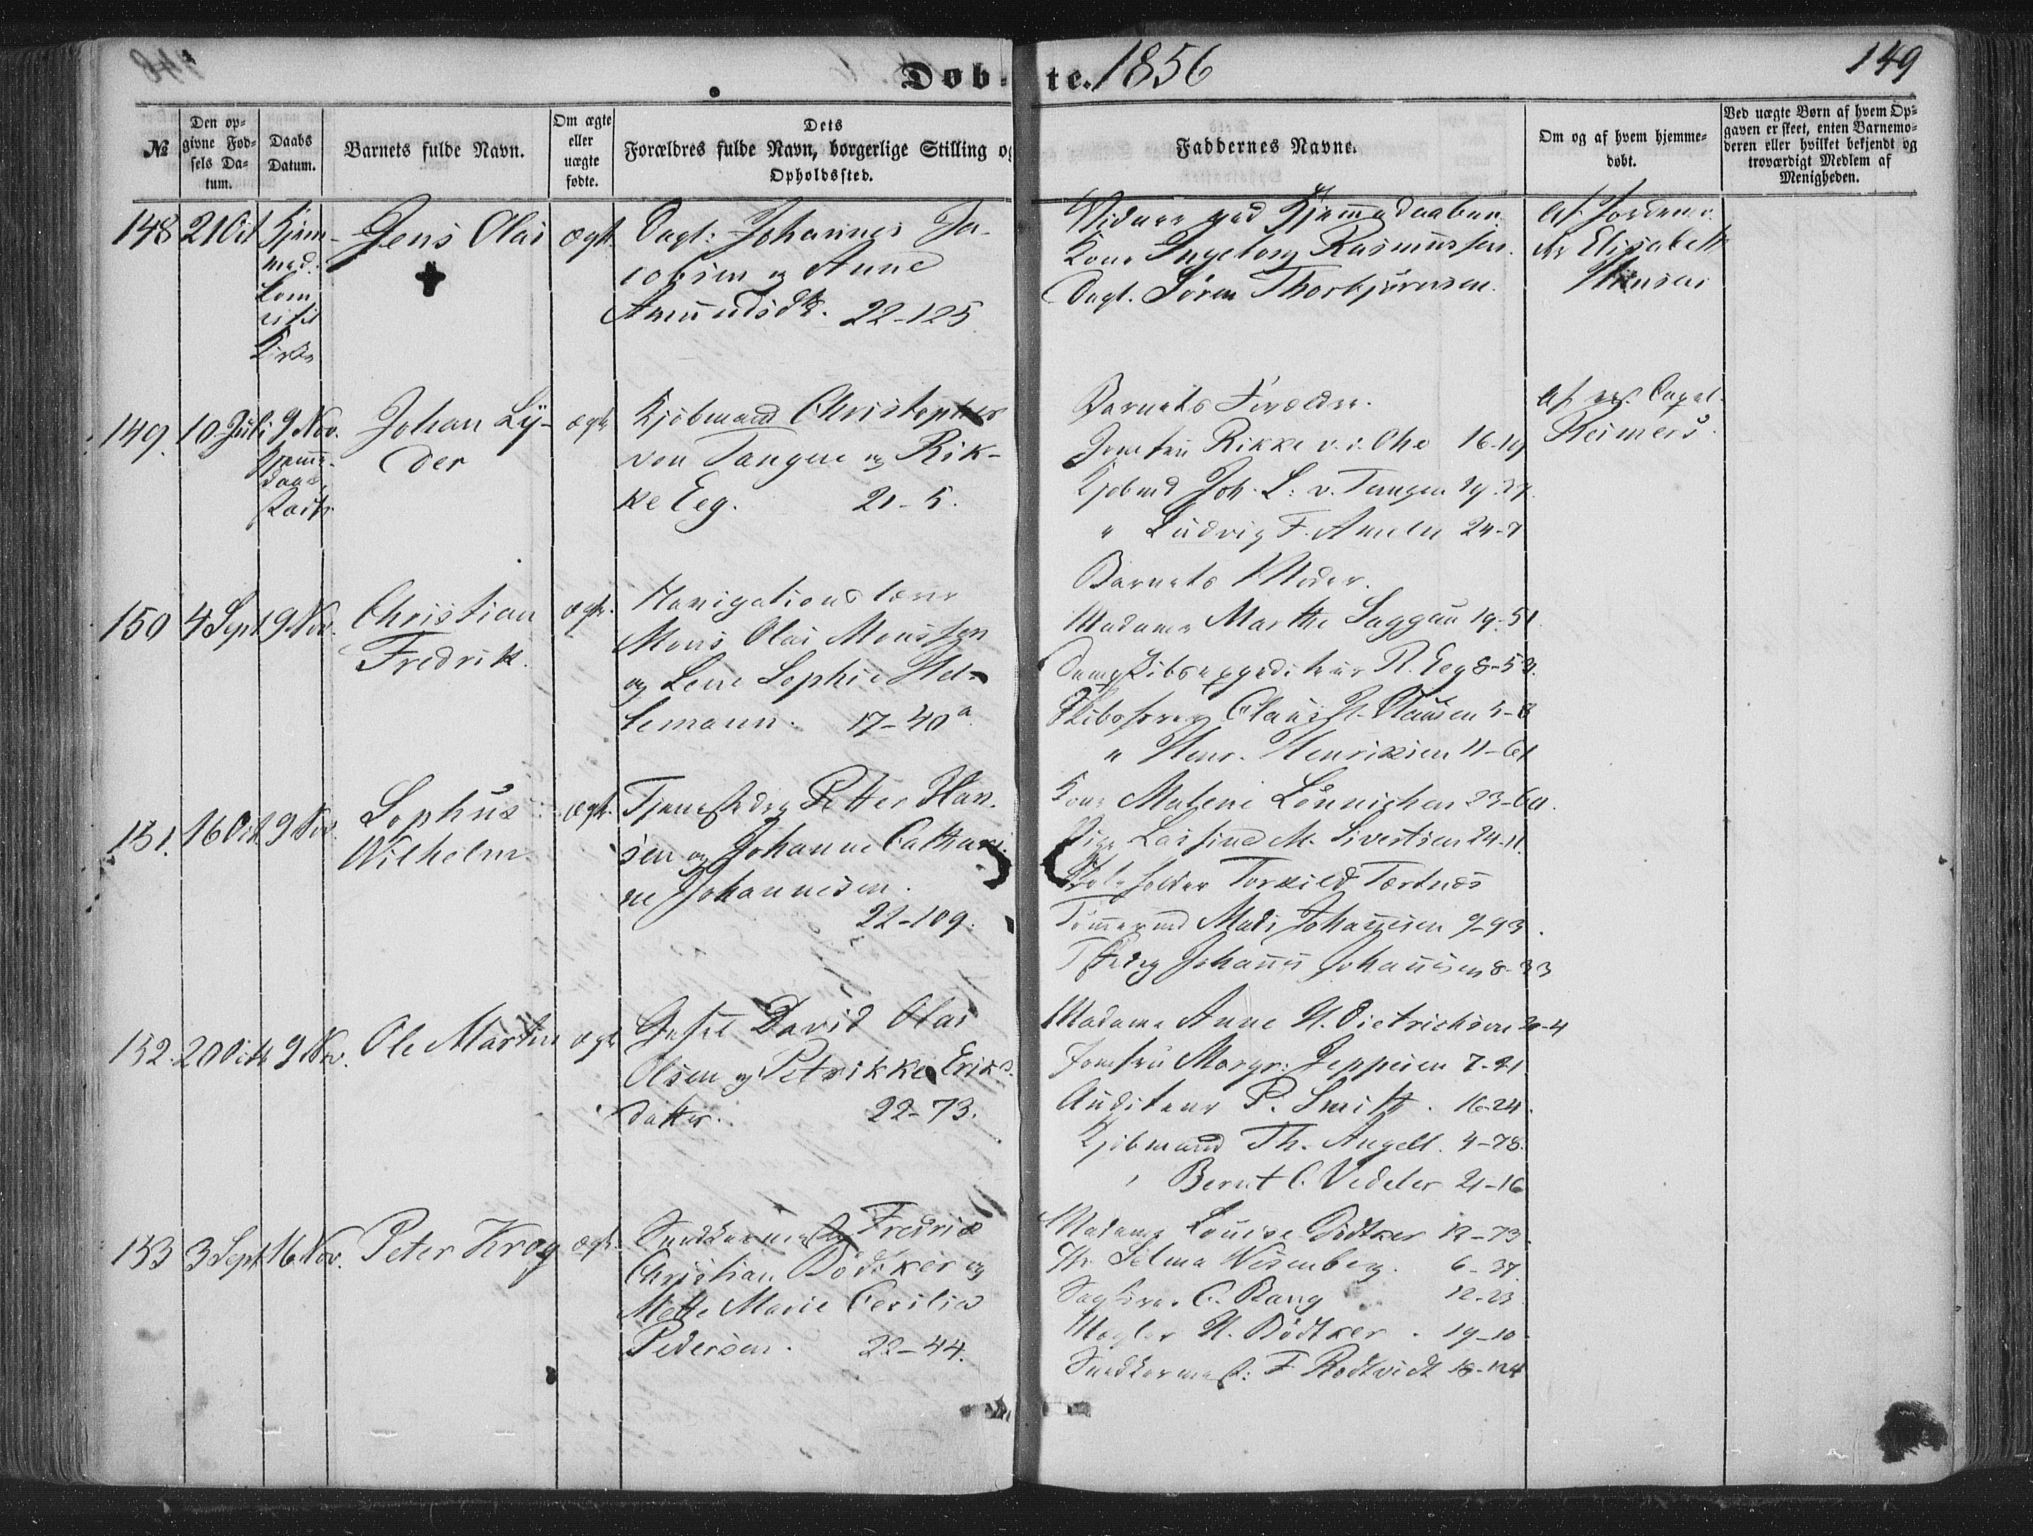 Døbte. 1856
149
№
Den op-
givne Fød-
sels Da-
tum.
Daabs
Datum.
Barnets fulde Navn.
Om ægte
eller
uægte
fødte.
Dets
Forældres fulde Navn, borgerlige Stilling og
Opholdssted.
Faddernes Navne.
Om og af hvem hjemme-
døbt.
Ved uægte Børn af hvem Op-
gaven er skeet, enten Barnemo-
deren eller hvilket bekjendt og
troværdigt Medlem af
Menigheden.
148 21 Oct
Jens Olai
ægte
Dagl. Johannes Ja-
cobsen og Anne
Amundsdtr. 22-125
Vidner ved Hjemmedaaben
Kone Ingeborg Rasmussen.
Dagl. Søren Thorbjørnsen.
Af Jordemo-
der Elisabeth
Hansen
149. 10 Juli 9 Nov.
Johan Ly-
der
ægte
Kjøbmand Christopher
von Tangen og Rik-
ke Eeg. 21-5.
Barnets Forældre.
Jomfru Rikke v. d. Ohe 16-19
Kjøbmd Joh. L. v. Tangen 19-27
" Ludvig F. 24-7
Af res. Capel.
Reimers.
150 4 Sept 9 Nov.
Christian
Fredrik.
ægte.
Navigationslærer
Mons Olai Monssen
og Lene Sophie Hel-
lemann. 17-40a
Barnets Moder.
Madame Marthe Saggau 19-51.
Dampskibsexpediteur R. Eeg 8-53.
Skibsfører Claus H. Clausen 5-8
" Henr. Henriksen 11-61
151. 16 Oct 9 Nov.
Sophus
Wilhelm
ægte.
Tjenestedrg Petter Han-
sen og Johanne Cathari-
ne Johannesen.
22-109.
Kone Malene Lönnichen 23-60.
Pige Larsine M. Sivertsen 24-11.
Skoleholder Torkild Tærtnæs
Tømmermd Mads Johannesen 9-93.
Tjdrg Johannes Johannesen 8-33
152. 20 Oct 9 Nov.
Ole Martin
ægte
David Olai
Olsen og Petrikke Eriks-
datter. 22-73.
Madame Anne H. Dietrichson 20-4
Jomfru Margr. Jeppesen 7-21
Auditeur P. Smith. 16-24.
Kjøbmand Th. Angell. 4-78.
" Bernt C. Vedeler 21-16
153 3 Sept 16 Nov.
Peter Krog
ægte.
Snedkermester Fredrik
Christian Bödtker og
Mette Marie Cecilia
Pedersen. 22-44.
Madame Louise Bödtker 12-73.
Fr. Selma Wesenberg. 6-37.
Sagfører C. Rang 12-23
Mægler H. Bödtker. 19-10.
Snedkermest: F. Rodtvidt 18-124